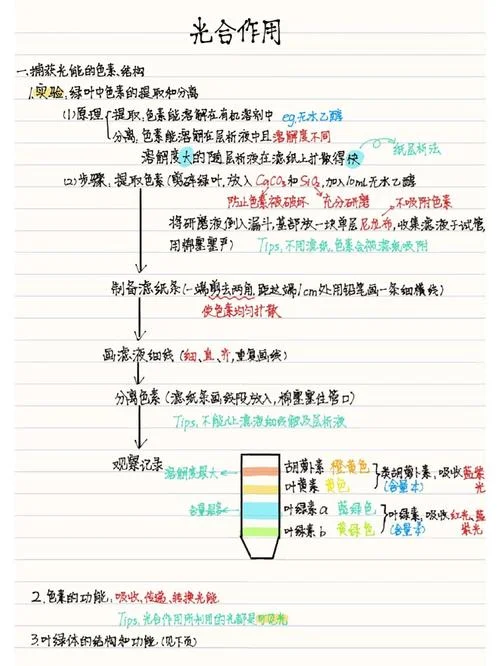 光合作用
一.捕获光能的色素、结构
1.实验,绿叶中色素的提取和分离
(1)原理 提取,色素能溶解在有机溶剂中 eg,无水乙醇
分离,色素能溶解在层析液中且溶解度不同
溶解度大的随层析液在滤纸上扩散得快 纸层析法
(2)步骤, 提取色素(剪碎绿叶,放入CaCO₃和SiO₂,加入10mL无水乙醇
防止色素被破坏 充分研磨 不吸附色素
将研磨液倒入漏斗,基部放一块单层尼龙布,收集滤液于试管,
用棉塞塞严) Tips,不用滤纸,色素会被滤纸吸附
制备滤纸条(一端剪去两角,距这端1cm处用铅笔画一条细横线)
使色素均匀扩散
画滤液细线(细、直、齐,重复画线)
分离色素(滤纸条画线段放入,棉塞塞住管口)
Tips,不能让滤液细线触及层析液
观察记录
溶解度最大 胡萝卜素 橙黄色 类胡萝卜素,吸收蓝紫光
叶黄素 黄色
含量最多 叶绿素a 蓝绿色 叶绿素,吸收红光、蓝紫光
叶绿素b 黄绿色
2.色素的功能, 吸收、传递、转换光能
Tips,光合作用所利用的光都是可见光
3.叶绿体的结构和功能,(见下页)